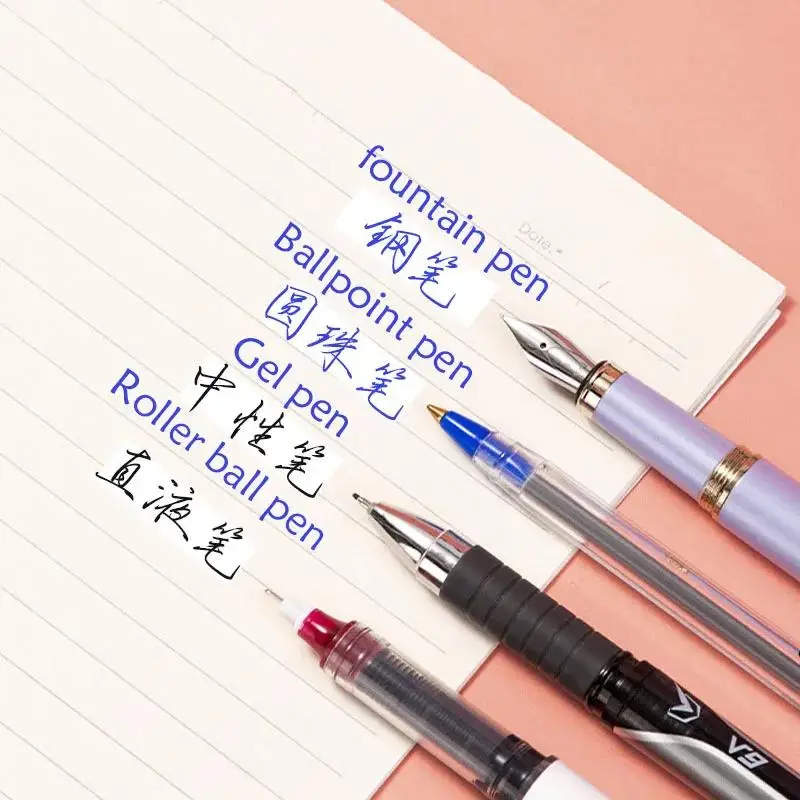 fountain pen
钢笔
Ballpoint pen
圆珠笔
Gel pen
中性笔
Roller ball pen
直液笔
Date.
V9